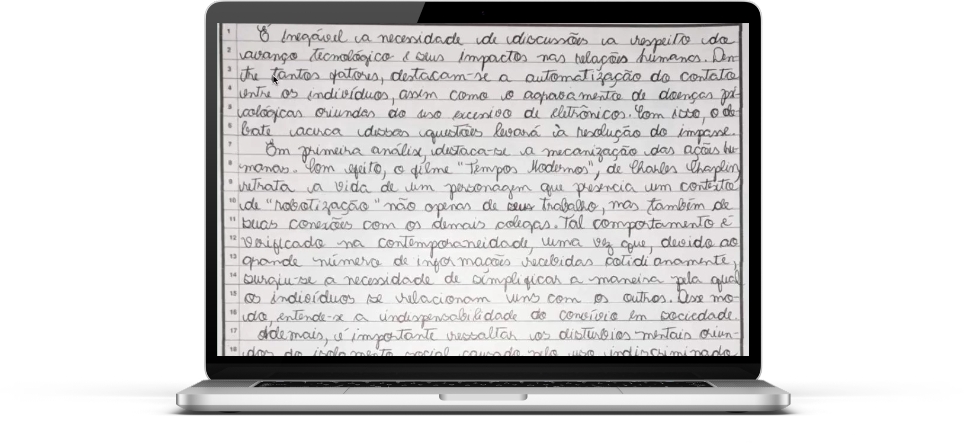 1 É inegável a necessidade de discussões a respeito do
2 avanço tecnológico e seus impactos nas relações humanas. Den-
3 tre tantos fatores, destacam-se a automatização do contato
4 entre os indivíduos, assim como o agravamento de doenças psi-
5 cológicas oriundas do uso excessivo de eletrônicos. Com isso, o de-
6 bate acerca dessas questões levará à resolução do impasse.
7 Em primeira análise, destaca-se a mecanização das ações hu-
8 manas. Com efeito, o filme "Tempos Modernos", de Charles Chaplin,
9 retrata a vida de um personagem que presencia um contexto
10 de "robotização" não apenas de seu trabalho, mas também de
11 suas conexões com os demais colegas. Tal comportamento é
12 verificado na contemporaneidade, uma vez que, devido ao
13 grande número de informações recebidas cotidianamente,
14 surgiu-se a necessidade de simplificar a maneira pela qual
15 os indivíduos se relacionam uns com os outros. Desse mo-
16 do, entende-se a indispensabilidade do convívio em sociedade.
17 Ademais, é importante ressaltar os distúrbios mentais oriun-
18 dos do isolamento social causado pelo uso indiscriminado